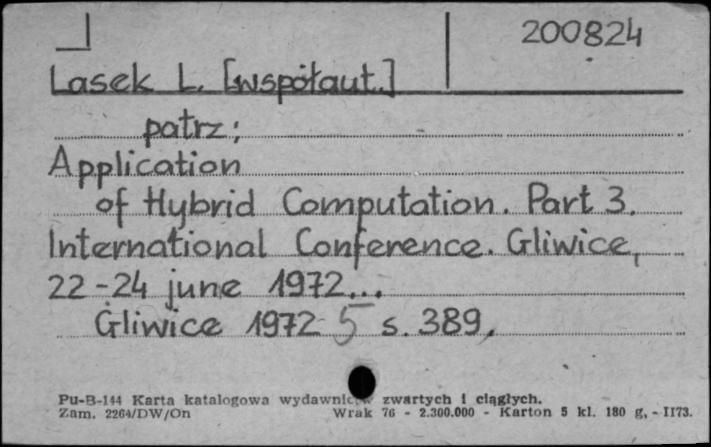 200824
Lasek L. [współaut.]
patrz:
Application
of Hybrid Computation. Part 3.
International Conference. Gliwice,
22-24 june 1972...
Gliwice 1972 5 s. 389,
Pu-B-144 Karta katalogowa wydawnictw zwartych i ciągłych.
Zam. 2264/DW/On Wrak 76 - 2.300.000 - Karton 5 kl. 180 g, - II73.